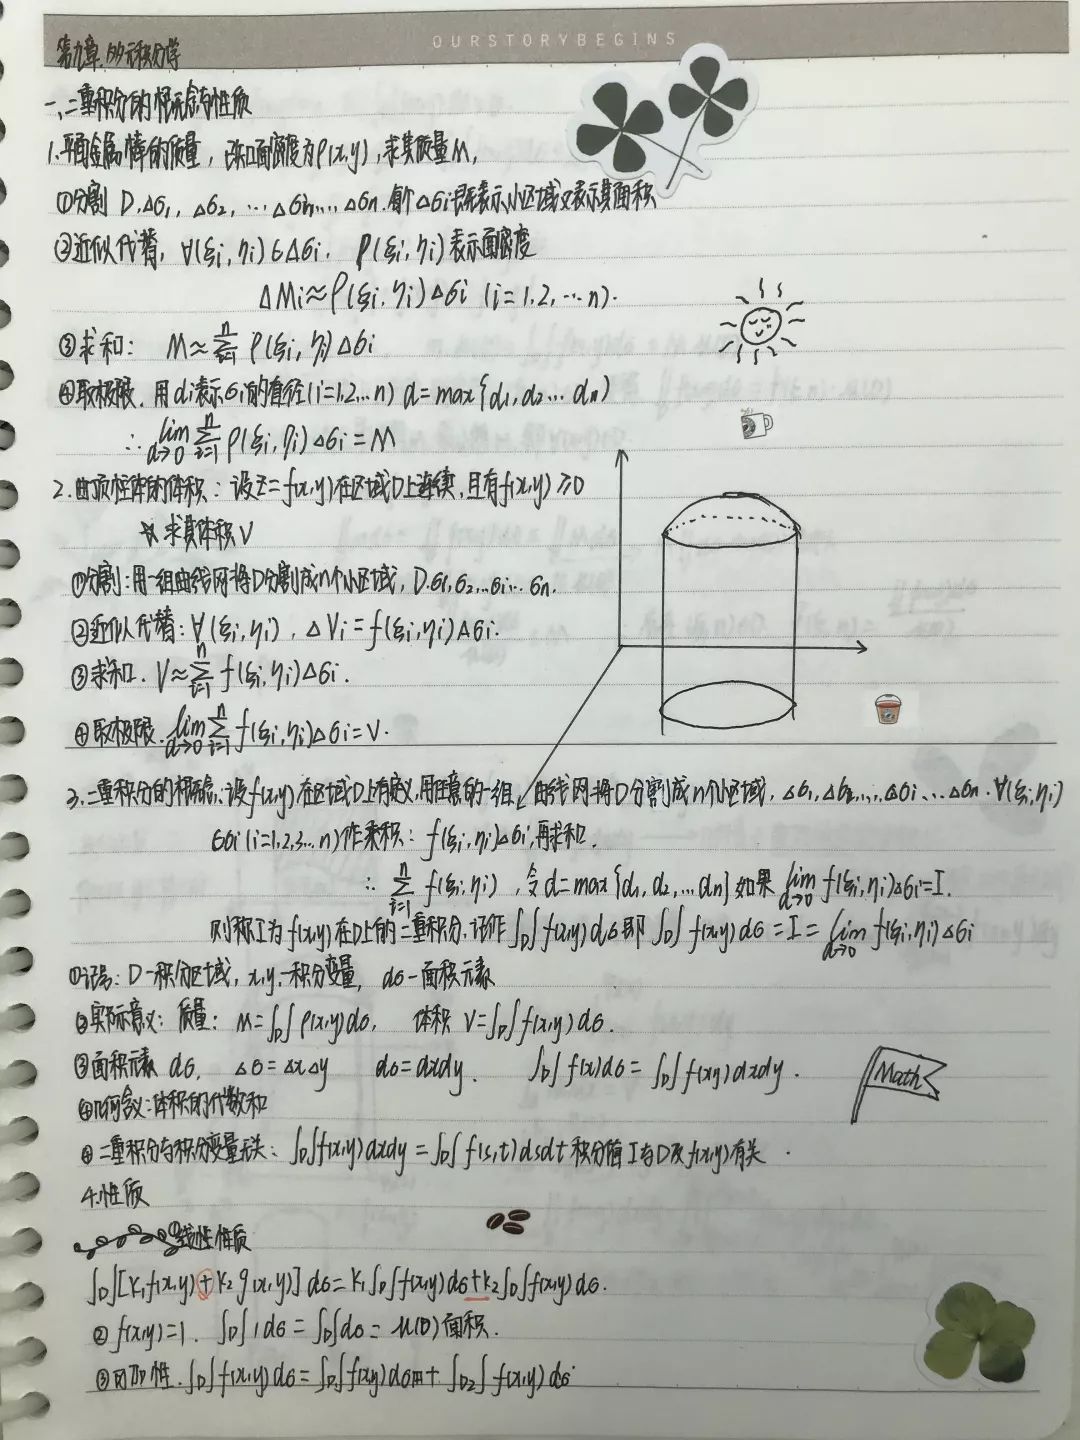 OURSTORYBEGINS
第九章. 多元积分学
一、二重积分的概念与性质
1.平面金属薄的质量, 已知面密度为ρ(x,y),求其质量M,
①分割 D.Δσ₁, Δσ₂, …Δσi..., Δσn.每个Δσi既表示小区域又表示其面积
②近似代替, ∀(ξi,ηi)∈Δσi. ρ(ξi,ηi)表示面密度
ΔMi≈ρ(ξi,ηi)Δσi (i=1,2,…n).
③求和: M≈∑ⁿᵢ₌₁ ρ(ξi,ηi)Δσi
④取极限. 用di表示σi的直径(i=1,2…n) d=max{d₁,d₂…dn}
∴ lim d→0 ∑ⁿᵢ₌₁ ρ(ξi,ηi)Δσi=M
2.曲顶柱体的体积:设Z=f(x,y)在区域D上连续,且有f(x,y)≥0
求其体积V
①分割:用一组曲线网将D分割成n个小区域, D.σ₁,σ₂,…σi…σn.
②近似代替:∀(ξi,ηi), ΔVi=f(ξi,ηi)Δσi.
③求和. V≈∑ⁿᵢ₌₁ f(ξi,ηi)Δσi.
④取极限. lim d→0 ∑ⁿᵢ₌₁ f(ξi,ηi)Δσi=V.
3.二重积分的概念:设f(x,y)在区域D上有定义,用任意的一组 曲线网将D分割成n个小区域, Δσ₁,Δσ₂,…,Δσi…Δσn.∀(ξi,ηi)
∈σi(i=1,2,3…n)作乘积: f(ξi,ηi)Δσi,再求和.
∴ ∑ⁿᵢ₌₁ f(ξi,ηi) ,令d=max{d₁,d₂,…dn}如果 lim d→0 f(ξi,ηi)Δσi=I.
则称I为f(x,y)在D上的二重积分,记作∫D∫f(x,y)dσ即∫D∫f(x,y)dσ=I=lim d→0 f(ξi,ηi)Δσi
①记号: D一积分区域, x,y.一积分变量, dσ-面积元素
②实际意义: 质量: M=∫D∫ρ(x,y)dσ, 体积 V=∫D∫f(x,y)dσ.
③面积元素 dσ, Δσ=ΔxΔy dσ=dxdy. ∫D∫f(x)dσ=∫D∫f(xy)dxdy.
④几何含义:体积的代数和
Math
④二重积分与积分变量无关: ∫D∫f(x,y)dxdy=∫D∫f(s,t)dsdt积分值I与D及f(x,y)有关.
4.性质
①线性性质
∫D∫[K₁f(x,y)+K₂g(x,y)]dσ=K₁∫D∫f(x,y)dσ+k₂∫D∫f(x,y)dσ.
②f(x,y)=1. ∫D∫1dσ=∫D∫dσ=μ(D)面积.
③可加性.∫D∫f(x,y)dσ=∫D∫f(x,y)dσ+∫D₂∫f(x,y)dσ